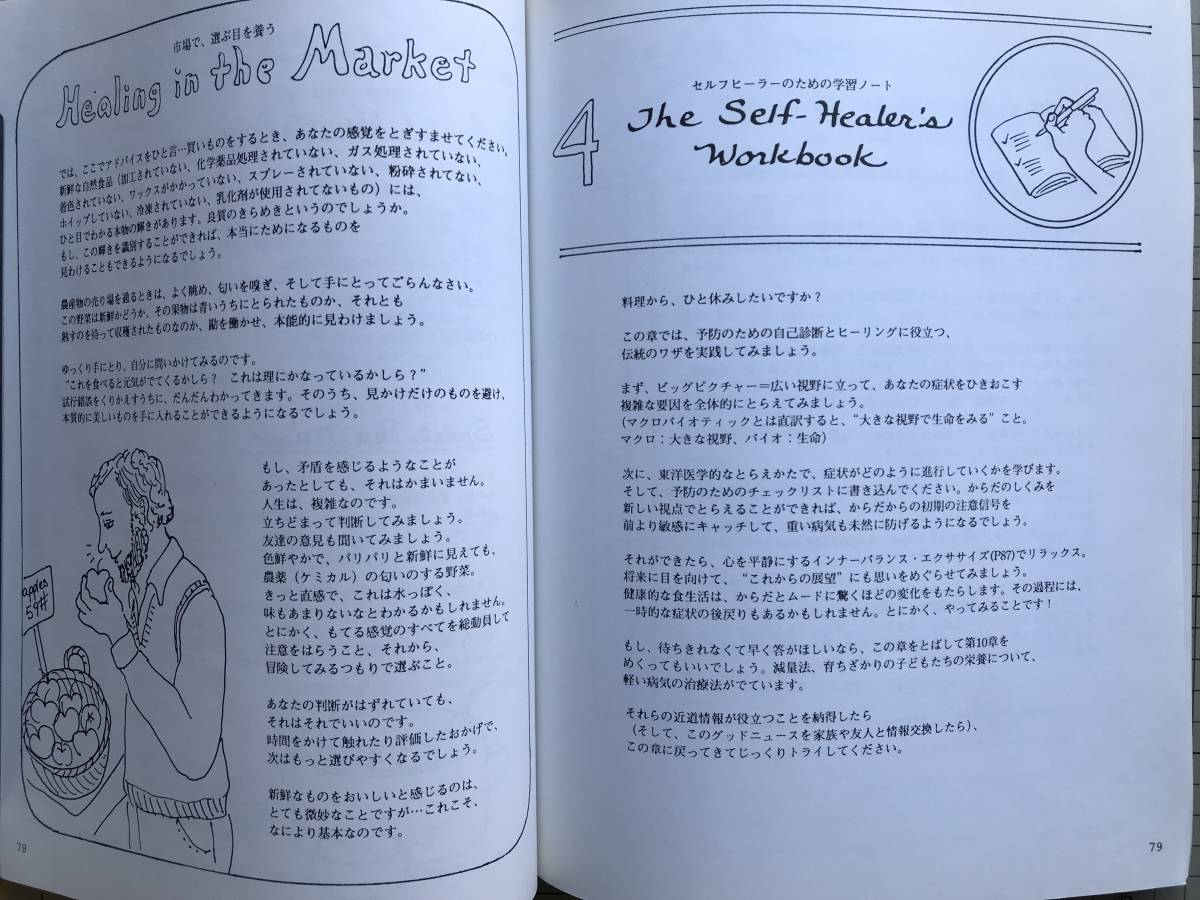 市場で、選ぶ目を養う
Healing in the Market
では、ここでアドバイスをひと言…買いものをするとき、あなたの感覚をとぎすませてください。
新鮮な自然食品（加工されていない、化学薬品処理されていない、ガス処理されていない、
着色されていない、ワックスがかかっていない、スプレーされていない、粉砕されてない、
ホイップしていない、冷凍されていない、乳化剤が使用されてないもの）には、
ひと目でわかる本物の輝きがあります。良質のきらめきというのでしょうか。
もし、この輝きを識別することができれば、本当にためになるものを
見わけることもできるようになるでしょう。
農産物の売り場を通るときは、よく眺め、匂いを嗅ぎ、そして手にとってごらんなさい。
この野菜は新鮮かどうか、その果物は青いうちにとられたものか、それとも
熟すのを待って収穫されたものなのか、勘を働かせ、本能的に見わけましょう。
ゆっくり手にとり、自分に問いかけてみるのです。
“これを食べると元気がでてくるかしら？　これは理にかなっているかしら？”
試行錯誤をくりかえすうちに、だんだんわかってきます。そのうち、見かけだけのものを避け、
本質的に美しいものを手に入れることができるようになるでしょう。
もし、矛盾を感じるようなことが
あったとしても、それはかまいません。
人生は、複雑なのです。
立ちどまって判断してみましょう。
友達の意見も聞いてみましょう。
色鮮やかで、パリパリと新鮮に見えても、
農薬（ケミカル）の匂いのする野菜。
きっと直感で、これは水っぽく、
味もあまりないなとわかるかもしれません。
とにかく、もてる感覚のすべてを総動員して
注意をはらうこと、それから、
冒険してみるつもりで選ぶこと。
あなたの判断がはずれていても、
それはそれでいいのです。
時間をかけて触れたり評価したおかげで、
次はもっと選びやすくなるでしょう。
新鮮なものをおいしいと感じるのは、
とても微妙なことですが…これこそ、
なにより基本なのです。
apples
59#
78
4
セルフヒーラーのための学習ノート
The Self-Healer's
Workbook
料理から、ひと休みしたいですか？
この章では、予防のための自己診断とヒーリングに役立つ、
伝統のワザを実践してみましょう。
まず、ビッグピクチャー＝広い視野に立って、あなたの症状をひきおこす
複雑な要因を全体的にとらえてみましょう。
(マクロバイオティックとは直訳すると、“大きな視野で生命をみる”こと。
マクロ：大きな視野、バイオ：生命)
次に、東洋医学的なとらえかたで、症状がどのように進行していくかを学びます。
そして、予防のためのチェックリストに書き込んでください。からだのしくみを
新しい視点でとらえることができれば、からだからの初期の注意信号を
前より敏感にキャッチして、重い病気も未然に防げるようになるでしょう。
それができたら、心を平静にするインナーバランス・エクササイズ(P87)でリラックス。
将来に目を向けて、“これからの展望”にも思いをめぐらせてみましょう。
健康的な食生活は、からだとムードに驚くほどの変化をもたらします。その過程には、
一時的な症状の後戻りもあるかもしれません。とにかく、やってみることです！
もし、待ちきれなくて早く答がほしいなら、この章をとばして第10章を
めくってもいいでしょう。減量法、育ちざかりの子どもたちの栄養について、
軽い病気の治療法がでています。
それらの近道情報が役立つことを納得したら
（そして、このグッドニュースを家族や友人と情報交換したら）、
この章に戻ってきてじっくりトライしてください。
79